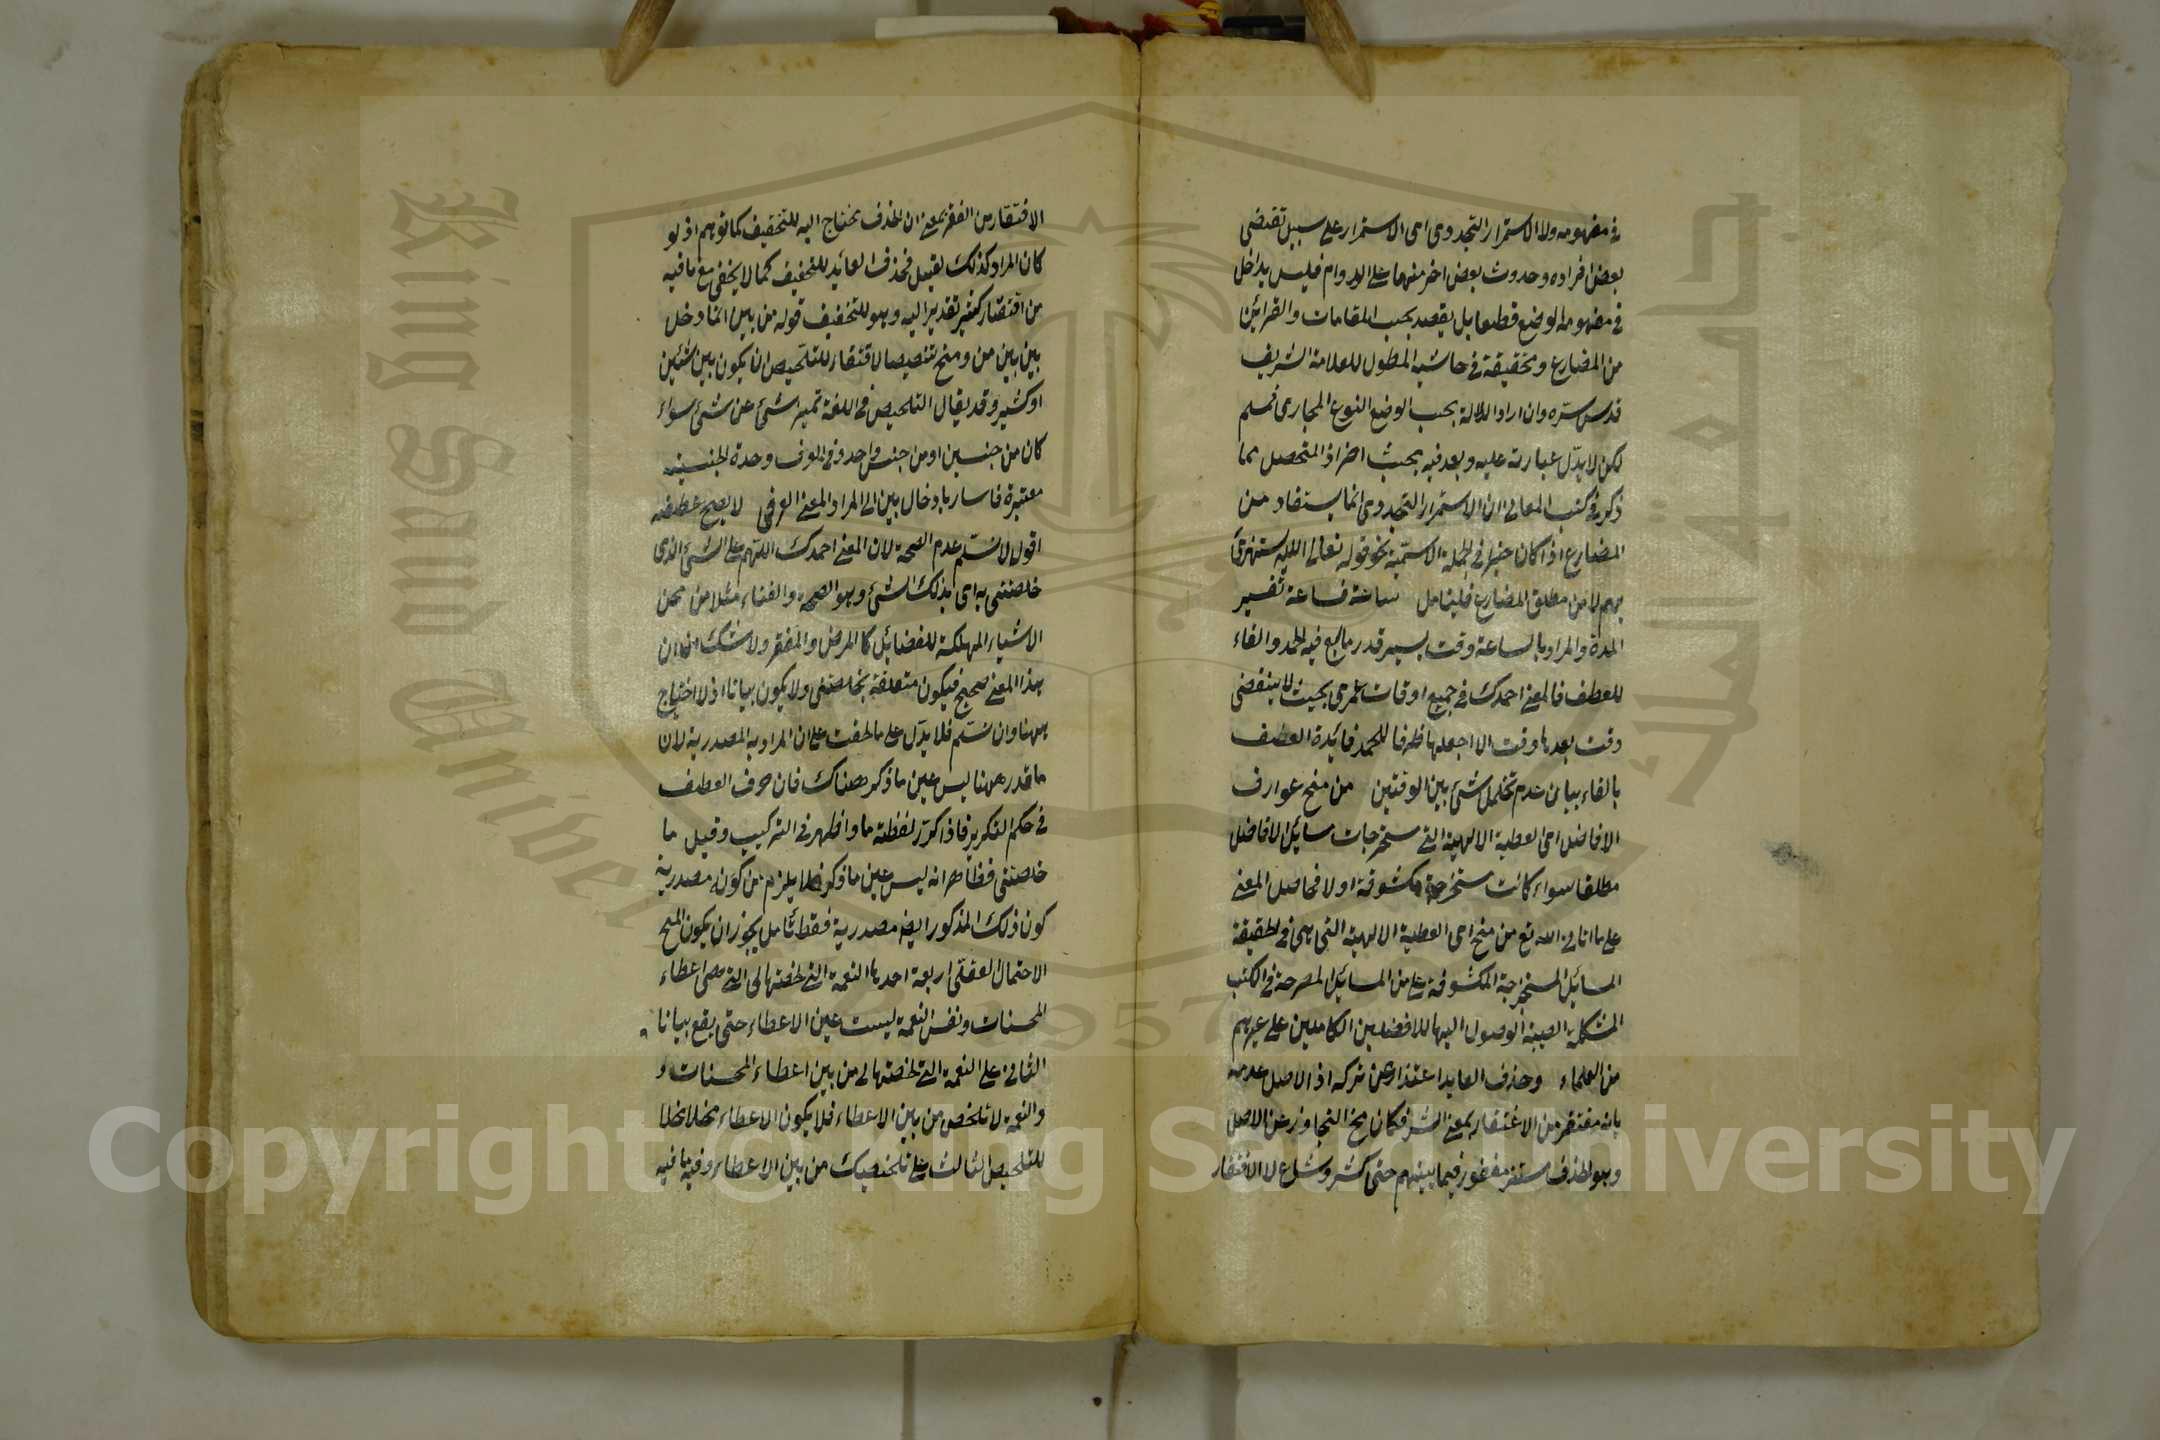 في مفهومه ولا الاستمرار التجددى اى الاستمرار على سبيل تقتضى
بعض افراده وحدوث بعض اخر منهما على الدوام فليس بداخل
في مفهومه الوضع قطعا بل يقصد بحسب المقامات والقرائن
من المضارع وتحقيقه في حاشية المطول للعلامة الشريف
قدس سره وان اراد الدلالة بحسب الوضع النوع المجازى فمسلم
لكن لا يدل عبارته عليه وبعد فيه بحث اخر اذ المتحصل مما
ذكر في كتب المعانى ان الاستمرار التجددى انما يستفاد من
المضارع اذا كان خبرا في الجملة الاسمية نحو قوله تعالى الله يستهزئ
بهم لا من مطلق المضارع فليتامل ساعة فساعة تفسير
المدة والمراد بالساعة وقت يسير قدر ما يسع فيه الحمد والفاء
للعطف فالمعنى احمدك في جميع اوقات عمرى بحيث لا ينقضى
وقت بعدها وقت الا اجعلها ظرفا للحمد فائدة العطف
بالفاء بيان عدم تخلل شئ بين الوقتين من منح عوارف
الافاضل اى العطية الالهية التى ستخرجات مسائل الافاضل
مطلقا سواء كانت مستخرجة مكشوفة اولا فحاصل المعنى
على ما انا في الله تع من منح اى العطية الالهية التى هى في الحقيقة
المسائل المستخرجة المكشوفة على من المسائل المصرحة في الكتب
المشكلة الصعبة الوصول اليها للافضلين الكاملين على غيرهم
من العلماء وحذف العايد اعتذار عن تركه اذ الاصل عدمه
بانه مفتقر من الاغتفار بمعنى الستر فكان مخ التجاوز عن الاصل
وهو الحذف مستتر مغفور فيما بينهم حتى كثر وشاع لا الافتقار
الافتقار من الفقر بمعنى ان الحذف محتاج اليه للتخفيف كما توهم اذ لو
كان المراد كذلك لقيل فحذف العايد للتخفيف كما لا يخفى مع ما فيه
من افتقار كثير تقدير اليه وهو للتخفيف قوله من بين انما دخل
بين بين من ومنح تنصيصا لاقتضاء للتلخيص ان يكون بين شئين
او كثير وقد يقال التلخيص في اللغة تمييز شئ عن شئ سواء
كان من جنسين او من جنس واحد وفي العرف وحدة الجنسية
معتبرة فاسار بادخال بين الى المراد المعنى العرفى لا يصح عطفه
اقول لا نسلم عدم الصحة لان المعنى احمدك اللهم على الشئ الذى
خلصتنى به اى بذلك الشئ وهو الصحة والغناء مثلا من محن
الاشياء المهلكة للفضائل كالمرض والفقر ولا شك ان
هذا المعنى صحيح فيكون متعلقة بخلصتنى ولا يكون بيانا اذ لا احتياج
ههنا وان سلم فلا يدل على ما لخصت على ان المراد به المصدرية لان
ما قدر ههنا ليس عين ما ذكر هناك فان حرف العطف
في حكم التكرير فاذا كرر لفظة ما واظهر في التركيب وقيل ما
خلصتنى فظاهر انه ليس عين ما ذكر فلا يلزم من كونه مصدرية
كون ذلك المذكور ايضا مصدرية فقط تامل يجوز ان يكون المنح
الاحتمال العقلى اربعة احدها النعمة التى لخصتها لى التى هى اعطاء
المحسنات ونفس النعمة ليست عين الاعطاء حتى يقع بيانا
الثانى على النعمة التى لخصتها لى من بين اعطاء المحسنات
والنعمة لا تلخص من بين الاعطاء فلا يكون الاعطاء
للتلخيص الثالث على تلخيصك من بين الاعطاء وفيه ما فيه
Copyright © King Saud University
King Saud University
1957